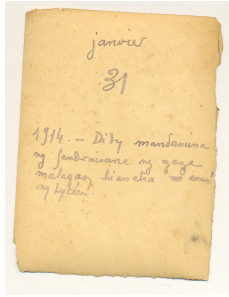 janvier
31
1914. – Didy mandavana
ny fandraisana ny gaga
malagasy hianatra
ny Lycée.